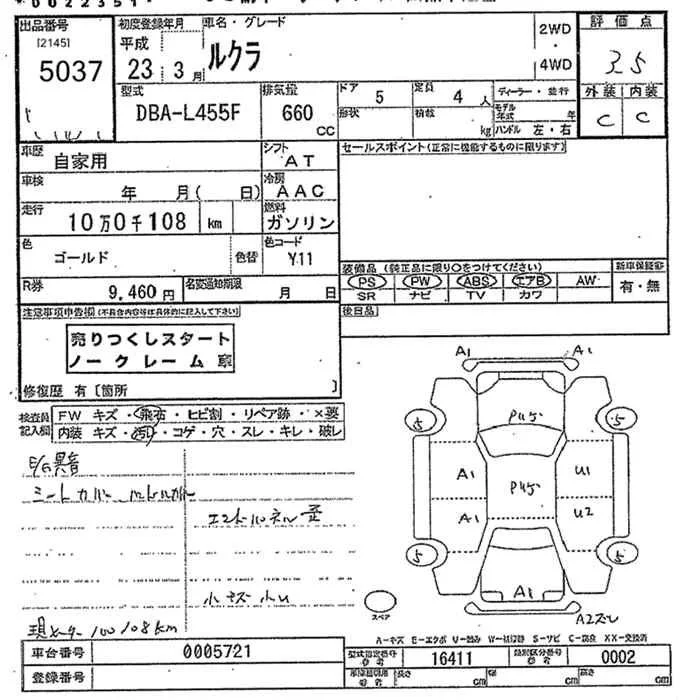 出品番号
[2145]
5037
初度登録年月
平成
23年3月
車名・グレード
ルクラ
2WD
・
4WD
評価点
3.5
外装 内装
C C
型式
DBA-L455F
排気量
660
CC
ドア
5
定員
4人
形状
積載
kg
ディーラー・並行
モデル年式 年
ハンドル 左・右
車歴
自家用
シフト
AT
セールスポイント(正常に機能するものに限ります)
車検
年 月( 日)
冷房
AAC
走行
10万0千108 km
燃料
ガソリン
色
ゴールド
色替
色コード
Y11
装備品 (純正品に限り〇をつけてください)
PS PW ABS エアB AW
SR ナビ TV カワ
新車保証書
有・無
R券
9,460円
名変通知期限
月 日
後日品
注意事項申告欄(不具合内容等は具体的に記入して下さい)
売りつくしスタート
ノークレーム車
修復歴 有〔箇所 〕
検査員記入欄
FW キズ・飛石・ヒビ割・リペア跡・×要
内装 キズ・汚れ・コゲ・穴・スレ・キレ・破レ
E/G異音
シートカバー
エンドパネル歪
小キズ小U
現メーター 100108km
A1 A1
P45
5 5
A1 P45 U1
A1 U2
5 5
A1
スペア
A2ズレ
A-キズ E-エクボ U-凹み W-板修跡 S-サビ C-腐食 XX-交換済
車台番号
0005721
登録番号
型式指定番号
参考
16411
類別区分番号
参考
0002
長さ cm
幅 cm
高さ cm